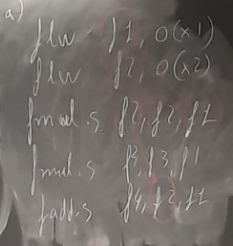 a)
flw f1, 0(x1)
flw f2, 0(x2)
fmul.s f2, f2, f1
fmul.s f3, f3, f1
fadd.s f4, f2, f1